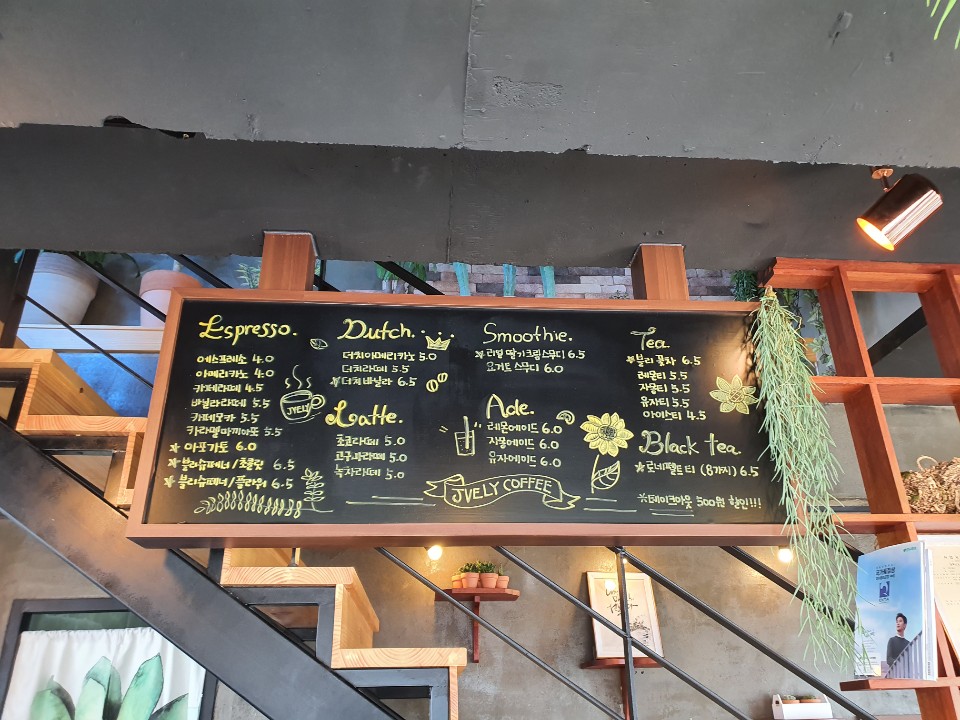 Espresso.
에스프레소 4.0
아메리카노 4.0
카페라떼 4.5
바닐라라떼 5.5
카페모카 5.5
카라멜마끼아또 5.5
★ 아포가토 6.0
★ 블리슈페너/초콜릿 6.5
★ 블리슈페너/플라워 6.5
JVELY
Dutch.
더치아메리카노 5.0
더치라떼 5.5
★ 더치바닐라 6.5
Latte.
초코라떼 5.0
고구마라떼 5.0
녹차라떼 5.0
Smoothie.
★ 리얼 딸기크림스무디 6.5
요거트 스무디 6.0
Ade.
레몬에이드 6.0
자몽에이드 6.0
유자에이드 6.0
JVELY COFFEE
Tea.
★ 블리꽃차 6.5
레몬티 5.5
자몽티 5.5
유자티 5.5
아이스티 4.5
Black tea.
★ 로네펠트티 (8가지) 6.5
※테이크아웃 500원 할인!!!